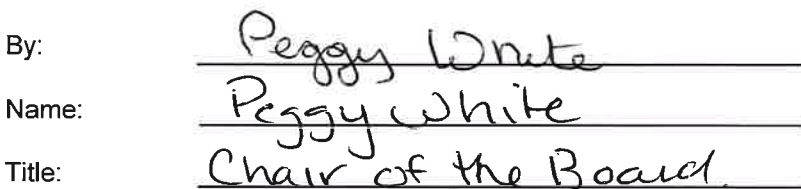 By: Peggy White
Name: Peggy White
Title: Chair of the Board.